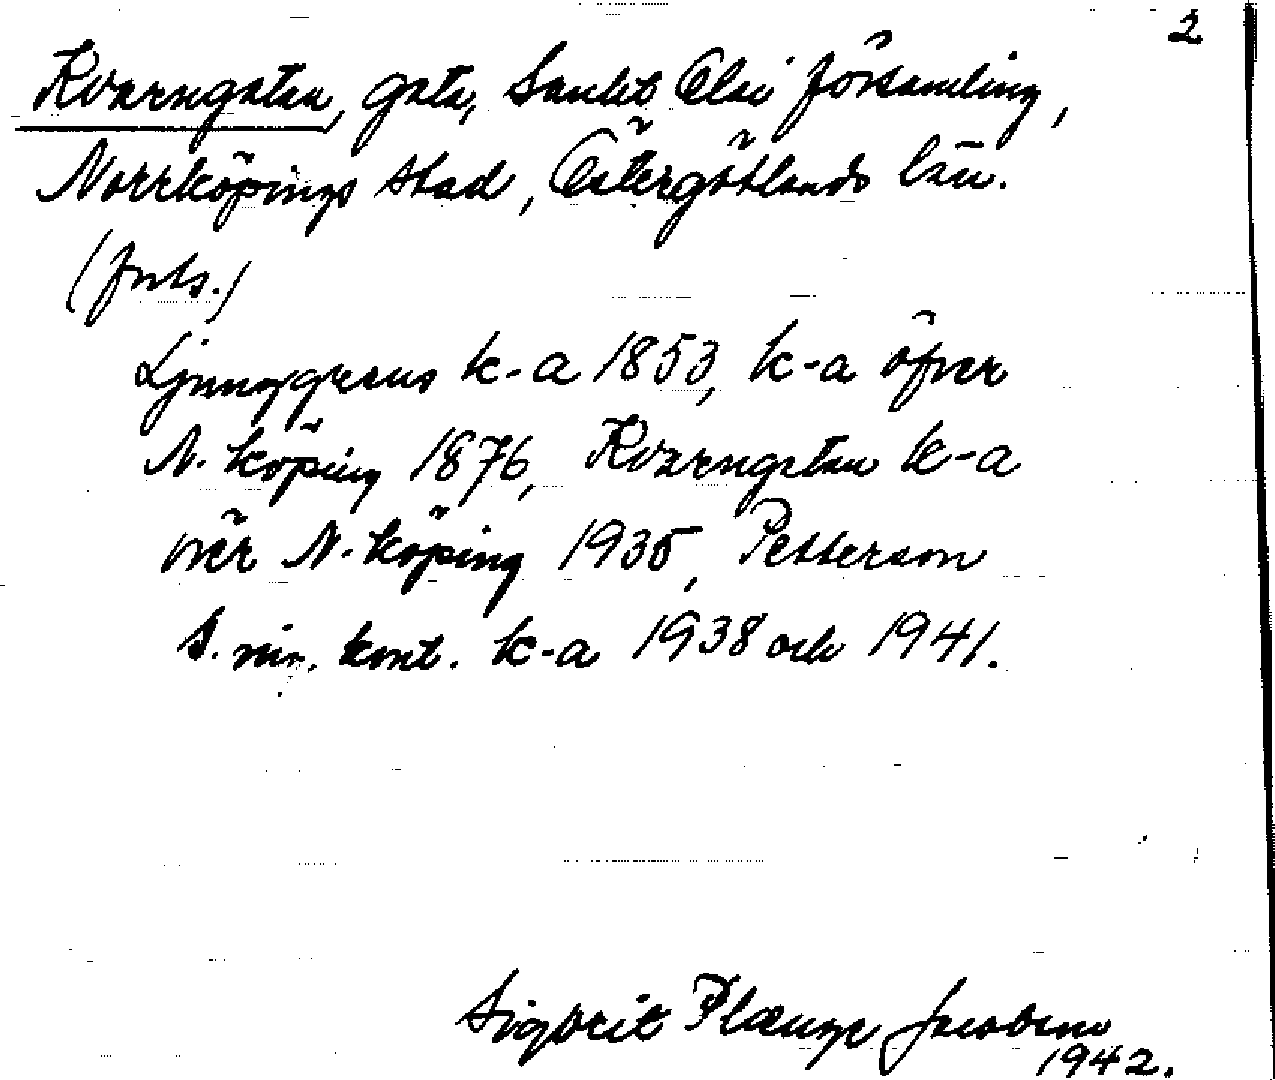 2
Kvarngatan, gata, Sankt Olai församling,
Norrköpings stad, Östergötlands län.
(forts.)
Ljunggrens k-a 1853, k-a öfver
N. köping 1876, Kvarngatan k-a
över N. köping 1935, Petterson
S. nin. kont. k-a 1938 och 1941.
Sigbrit Plænge Jacobson
1942.